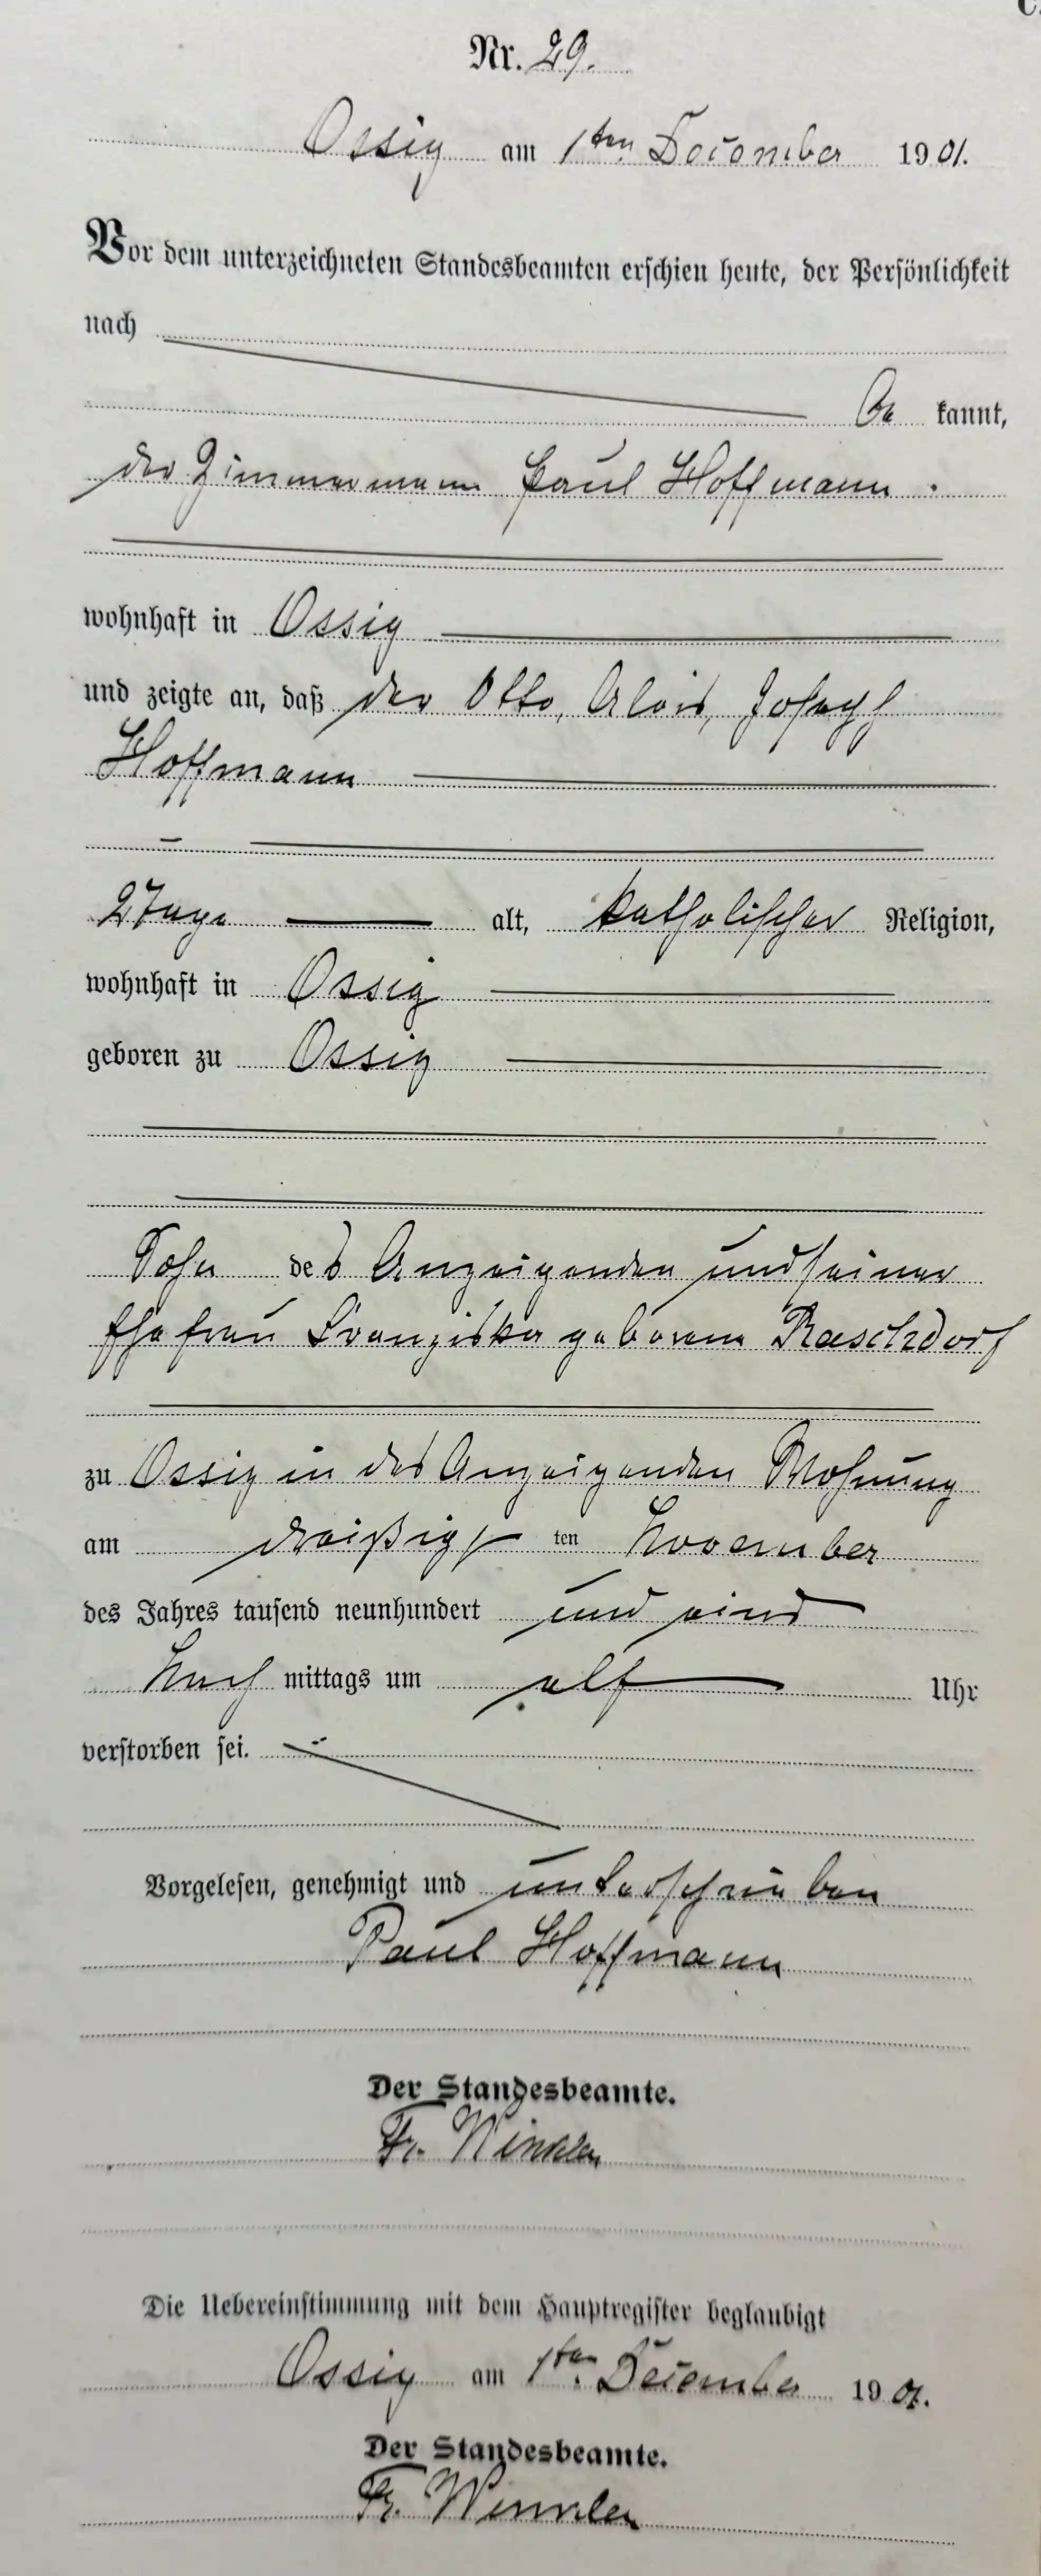 Nr. 29.
Ossig am 1ten December 1901.
Vor dem unterzeichneten Standesbeamten erschien heute, der Persönlichkeit
nach
be kannt,
der Zimmermann Paul Hoffmann.
wohnhaft in Ossig
und zeigte an, daß der Otto, Alois, Joseph
Hoffmann
2 Tage alt, katholischer Religion,
wohnhaft in Ossig
geboren zu Ossig
Sohn des Anzeigenden und seiner
Ehefrau Franziska geborene Raschdorf
zu Ossig in des Anzeigenden Wohnung
am dreißigs ten November
des Jahres tausend neunhundert und eins
Nach mittags um elf Uhr
verstorben sei.
Vorgelesen, genehmigt und unterschrieben
Paul Hoffmann
Der Standesbeamte.
Fr. Winkler
Die Uebereinstimmung mit dem Hauptregister beglaubigt
Ossig am 1ten December 1901.
Der Standesbeamte.
Fr. Winkler